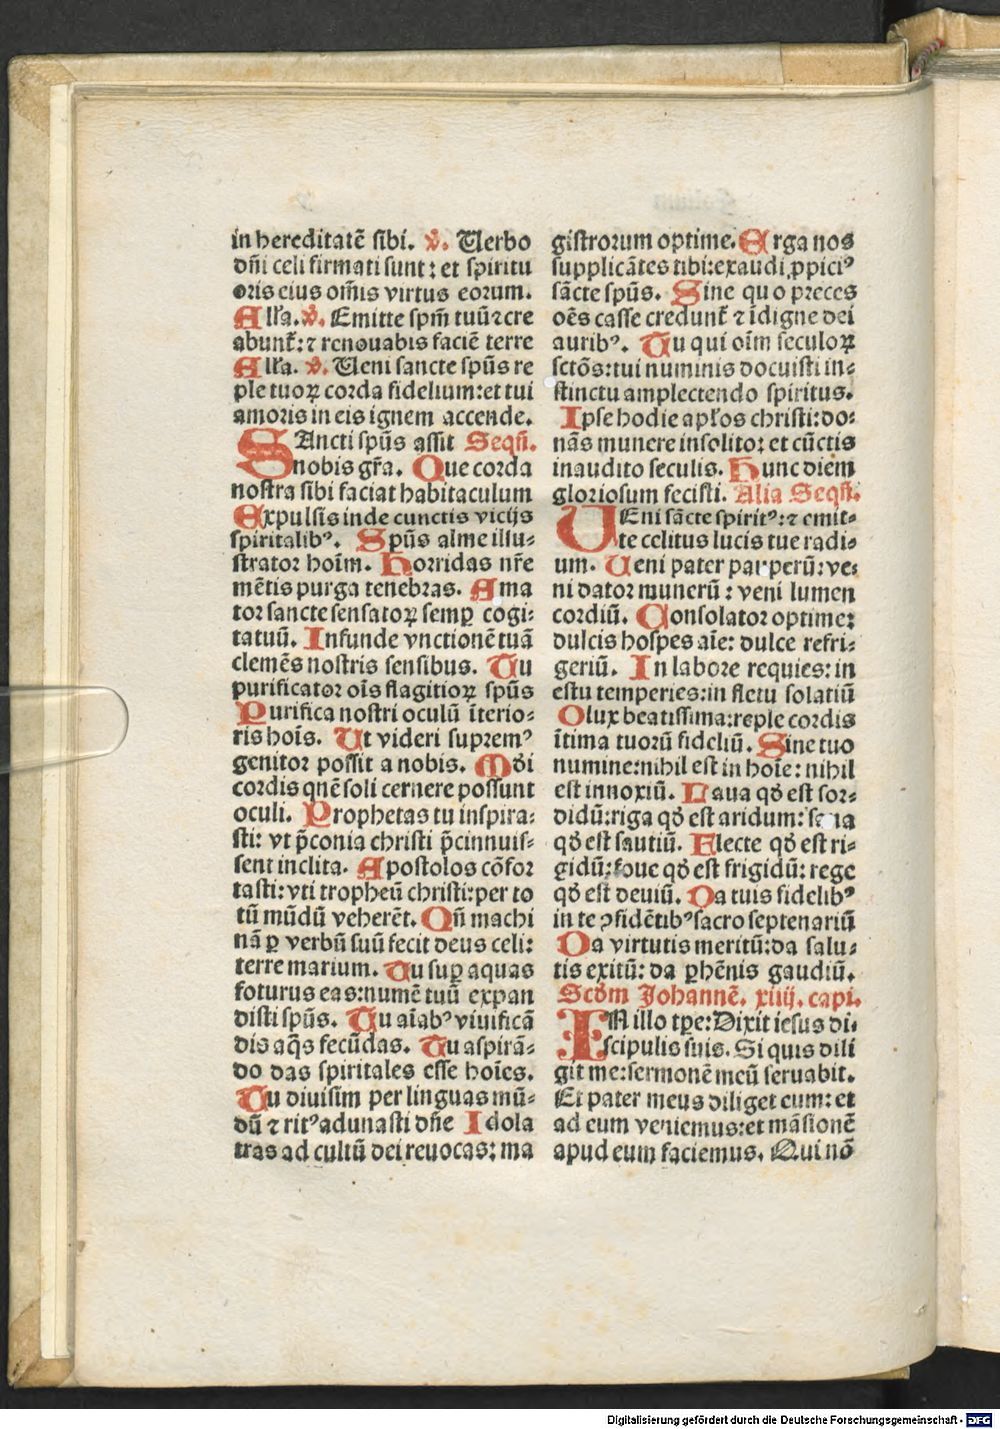 in hereditatē sibi. v̾. Uerbo
dn̄i celi firmati sunt: et spiritu
oris eius om̄is virtus eorum.
Allˀa. v̾. Emitte spm̄ tuū ⁊ cre
abunt᷑: ⁊ renouabis faciē terre
Allˀa. v̾. Ueni sancte spūs re
ple tuoꝝ corda fidelium: et tui
amoris in eis ignem accende.
SAncti spūs assit Seqn̄.
nobis gr̄a. Que corda
nostra sibi faciat habitaculum
Expulsis inde cunctis vicijs
spiritalibꝰ. Spūs alme illu⸗
strator hoīm. Horridas nr̄e
mētis purga tenebras. Ama
tor sancte sensatoꝝ semꝑ cogi⸗
tatuū. Infunde vnctionē tuā
clemēs nostris sensibus. Tu
purificator oīs flagitioꝝ spūs
Purifica nostri oculū īterio⸗
ris hoīs. Ut videri supremꝰ
genitor possit a nobis. Mūdi
cordis quē soli cernere possunt
oculi. Prophetas tu inspira⸗
sti: vt p̄conia christi p̄cinnuis⸗
sent inclita. Apostolos cōfor
tasti: vti tropheū christi: per to
tū mūdū veherēt. Qn̄ machi
nā ꝑ verbū suū fecit deus celi:
terre marium. Tu suꝑ aquas
foturus eas: numē tuū expan
disti spūs. Tu aīabꝰ viuificā
dis aq̄s fecūdas. Tu aspirā⸗
do das spiritales esse hoīes.
Tu diuisim per linguas mū⸗
dū ⁊ ritꝰ adunasti dn̄e Idola
tras ad cultū dei reuocas: ma
gistrorum optime. Erga nos
supplicātes tibi: exaudi ꝓpiciꝰ
sācte spūs. Sine quo preces
oēs casse credunt᷑ ⁊ īdigne dei
auribꝰ. Tu qui oīm seculoꝝ
sctōs: tui numinis docuisti in⸗
stinctu amplectendo spiritus.
Ipse hodie apl̄os christi: do⸗
nās munere insolito: et cūctis
inaudito seculis. Hunc diem
gloriosum fecisti. Alia Seqn̄.
UEni sācte spiritꝰ: ⁊ emit⸗
te celitus lucis tue radi⸗
um. Ueni pater pauperū: ve⸗
ni dator munerū: veni lumen
cordiū. Consolator optime:
dulcis hospes aīe: dulce refri⸗
geriū. In labore requies: in
estu temperies: in fletu solatiū
O lux beatissima: reple cordis
ītima tuorū fideliū. Sine tuo
numine: nihil est in hoīe: nihil
est innoxiū. Laua qd̄ est sor⸗
didū: riga qd̄ est aridum: sana
qd̄ est sautiū. Flecte qd̄ est ri⸗
gidū: foue qd̄ est frigidū: rege
qd̄ est deuiū. Da tuis fidelibꝰ
in te ꝯfidētibꝰ sacro septenariū
Da virtutis meritū: da salu⸗
tis exitū: da ꝑhēnis gaudiū.
Scd̄m Johannē. xiiij. capi.
IN illo tꝑe: Dixit iesus di⸗
scipulis suis. Si quis dili
git me: sermonē meū seruabit.
Et pater meus diliget eum: et
ad eum veniemus: et māsionē
apud eum faciemus. Qui nō
Digitalisierung gefördert durch die Deutsche Forschungsgemeinschaft - DFG